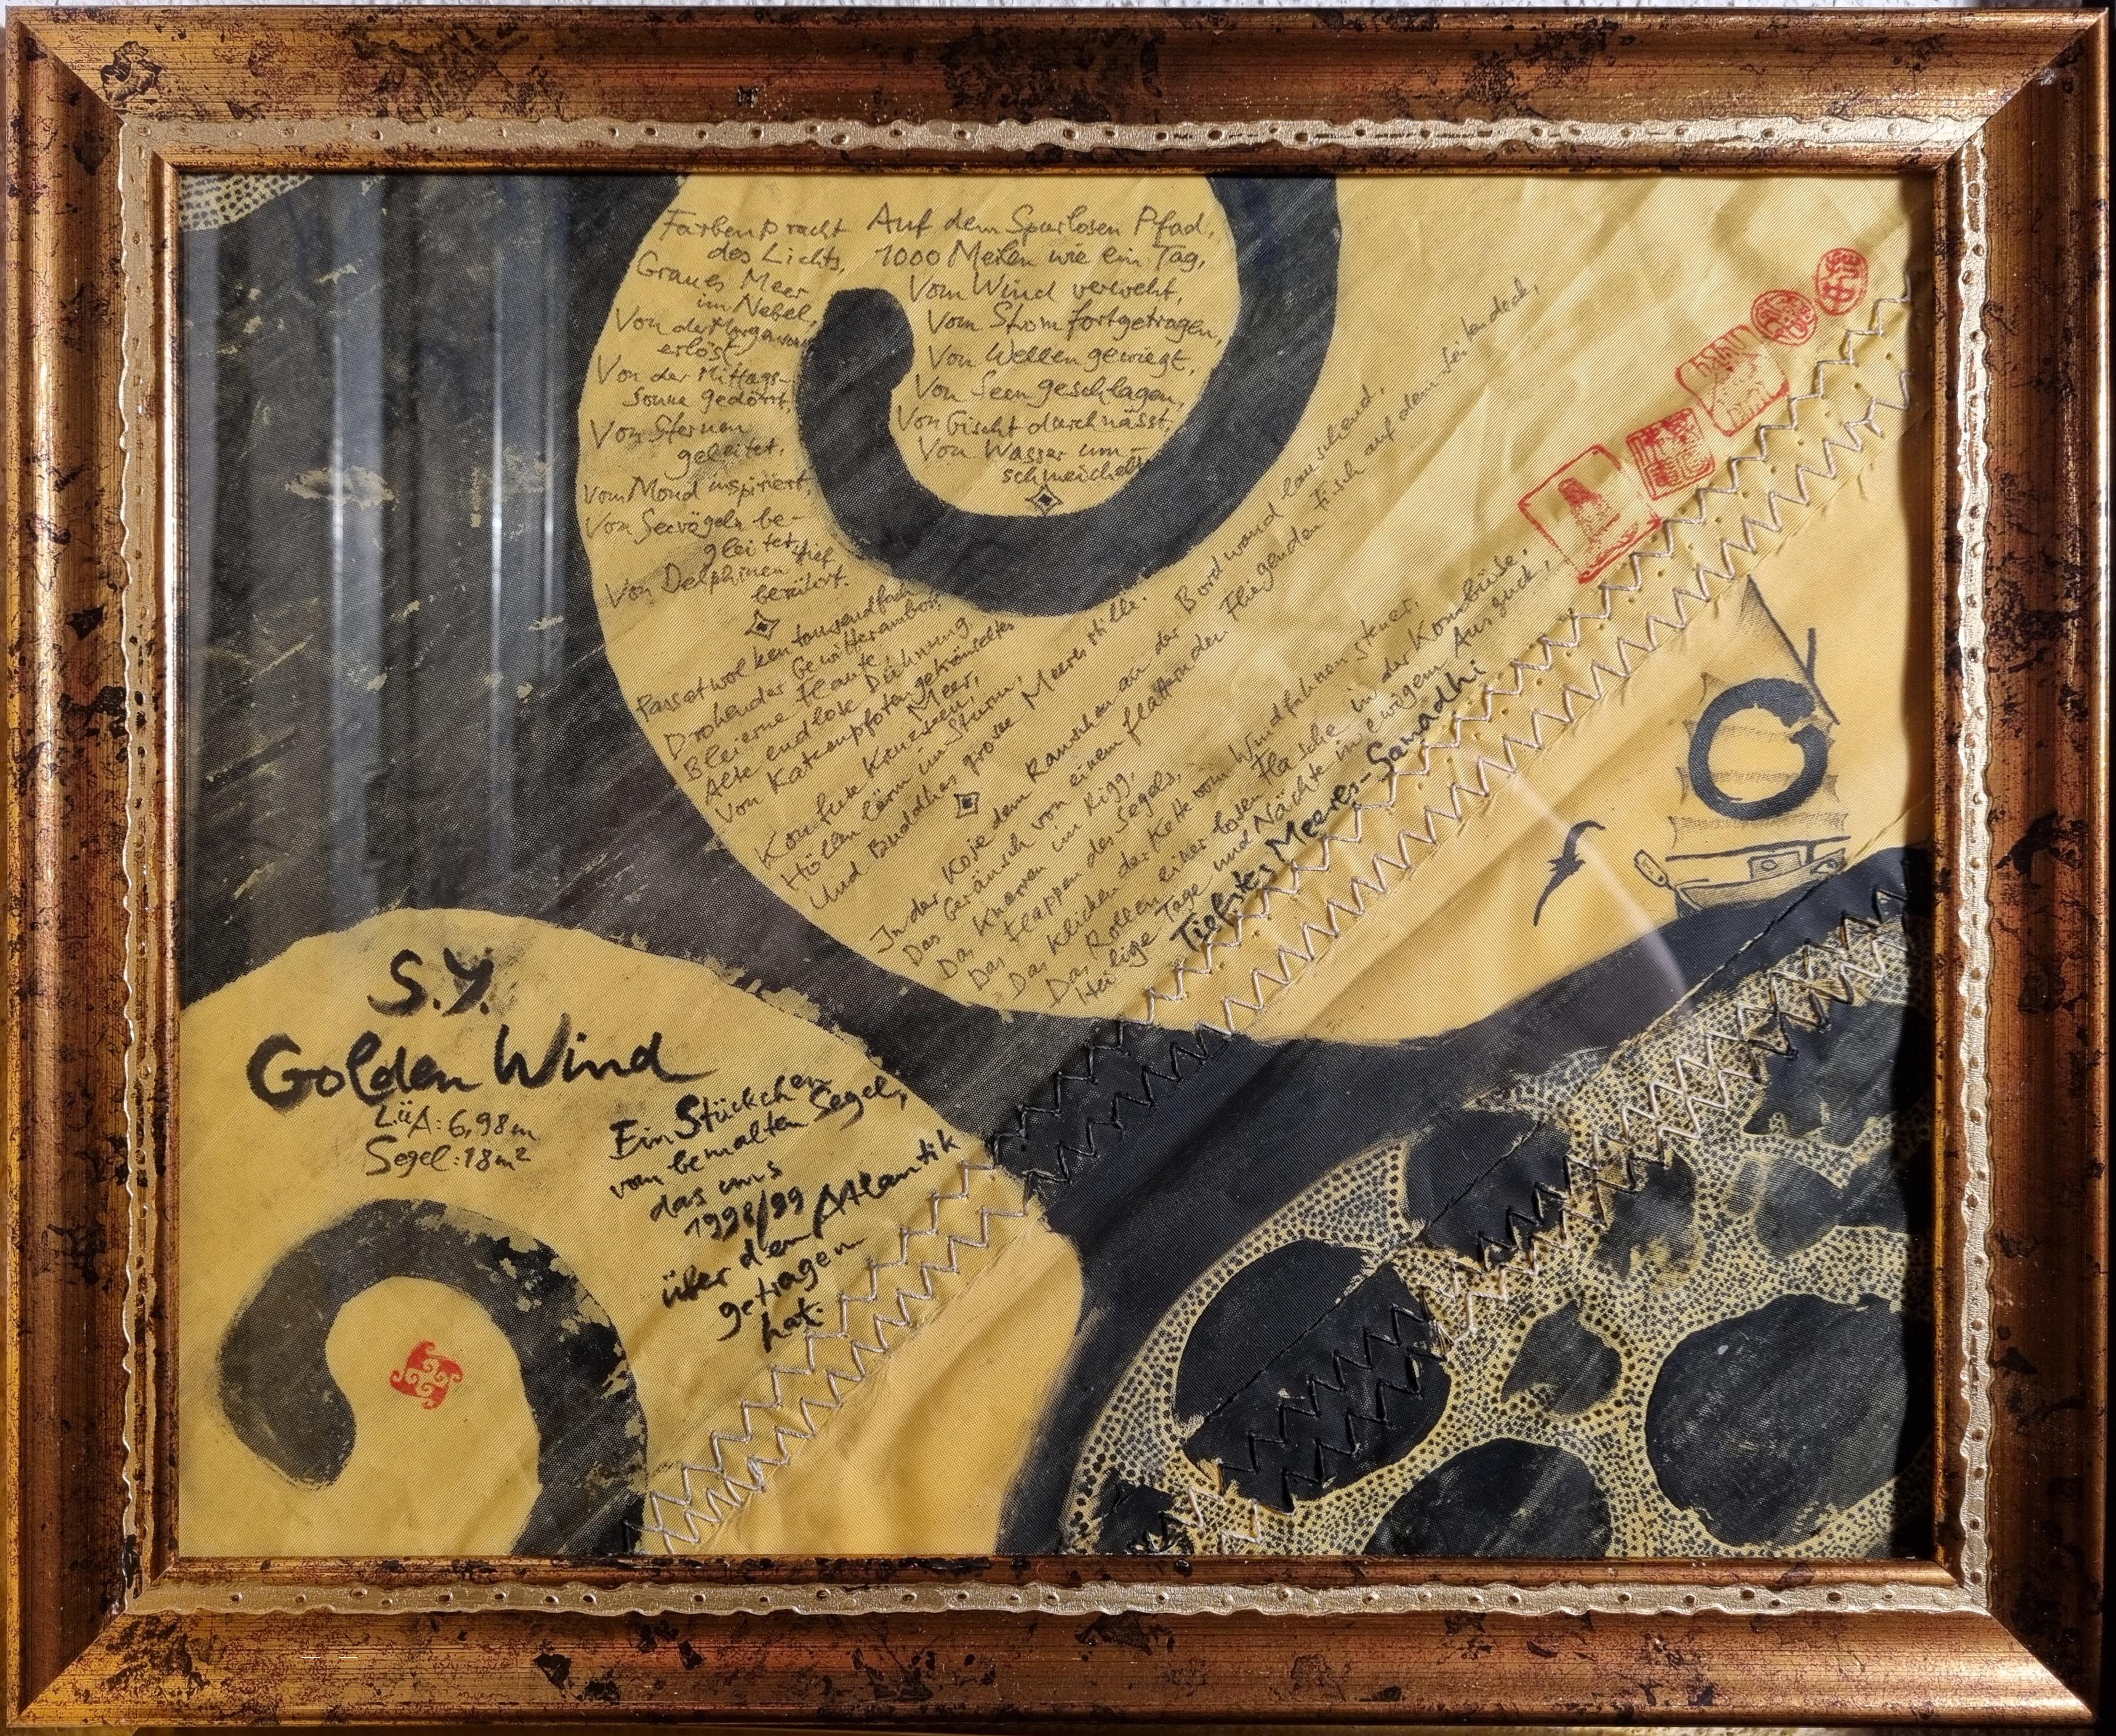 Auf dem Spurlosen Pfad,
1000 Meilen wie ein Tag,
Vom Wind verweht,
Vom Strom fortgetragen,
Von Wellen gewiegt,
Von Seen geschlagen,
Von Gischt durchnässt,
Von Wasser um-
schmeichelt
Farbenpracht
des Lichts,
Graues Meer
im Nebel,
Von der
erlöst
Von der Mittags-
Sonne gedörrt,
Von Sternen
geleitet,
Vom Mond inspiriert,
Von Seevögeln be-
gleitet,
Von Delphinen tief
berührt.
Passatwolken tausendfach
Drohender Gewitteramboss
Bleierne Flaute,
Alte endlose Dühnung,
Von Katzenpfoten gekräuseltes
Meer,
Konfuse Kreuzseen,
Höllenlärm im Sturm,
Und Buddhas grosse Meeresstille.
In der Koje dem Rauschen an der Bordwand lauschend,
Das Geräusch von einem flatternden Fliegenden Fisch auf dem Seitendeck,
Das Knarren im Rigg,
Das Flappen des Segels,
Das Klicken der Kette vom Windfahnensteuer,
Das Rollen einer losten Flasche in der Kombüse,
Heilige Tage und Nächte im ewigem Ausguck,
Tiefstes Meeres-Samadhi
S.Y.
Golden Wind
LüA: 6,98m
Segel: 18m²
Ein Stückchen
vom bemalten Segel,
das uns
1998/99
über den Atlantik
getragen
hat.